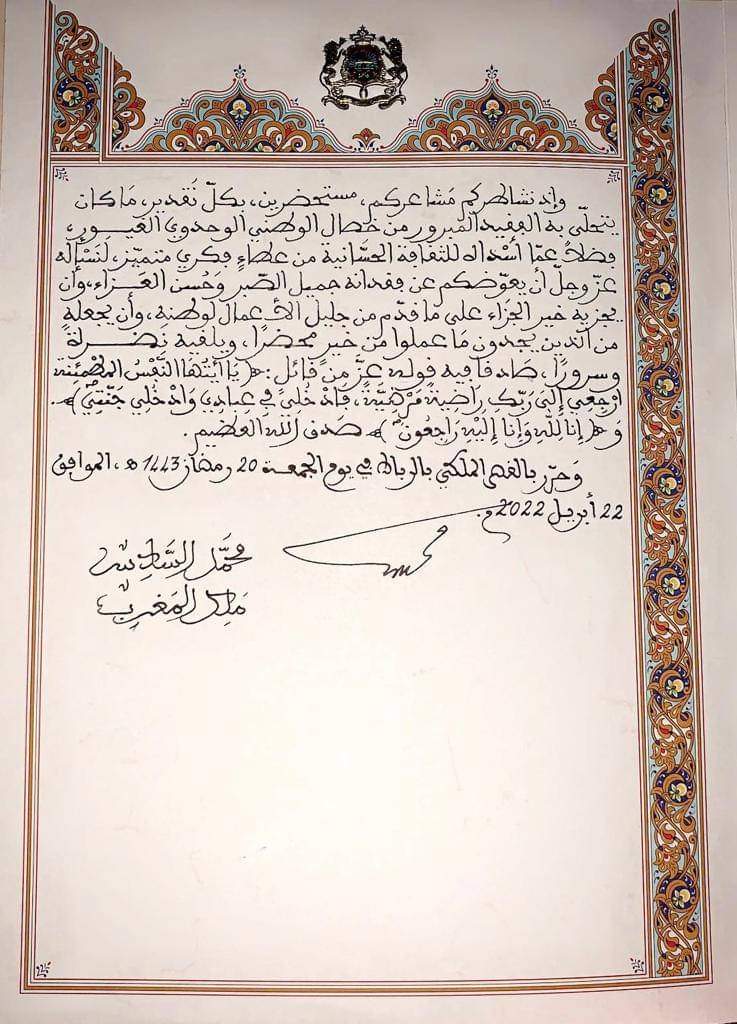 وإذ نشاطركم مشاعركم، مستحضرين، بكلّ تقدير، ما كان
يتحلّى به الفقيد المبرور من خصال الوطني الوحدوي الغيور،
فضلاً عمّا أسداه للثقافة الحسّانية من عطاءٍ فكري متميّز، لنسأله
عزّ وجلّ أن يعوّضكم عن فقدانه جميل الصّبر وحُسن العَزاء، وأن
يجزيه خير الجزاء على ما قدّم من جليل الأعمال لوطنه، وأن يجعله
من الذين يجدون ما عملوا من خير محضرًا، ويلقيه نضرة
وسرورًا، صادقا فيه قوله عزّ من قائل: ﴿يَا أيّتُهَا النّفْسُ المطْمئِنة
ارجِعِي إِلَى رَبّكِ رَاضِيةً مَرْضِيّةً، فَادْخُلِي فِي عِبادِي وَادْخُلِي جَنّتِي﴾.
وَ ﴿إنا لِلّهِ وَإنا إِلَيْهِ رَاجعُونَ﴾ صدق الله العظيم.
وَحرّر بالقصر الملكي بالرباط في يوم الجمعة 20 رمضان 1443 هـ، الموافق
22 أبريل 2022 م.
محمّد السّادِس
مَلِك المَغرِب